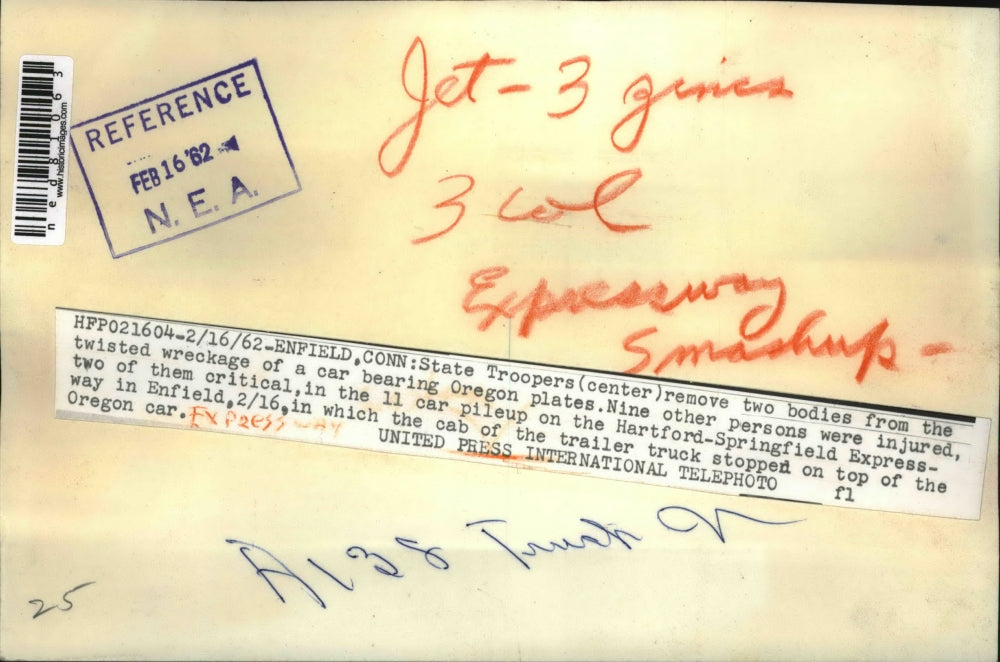 REFERENCE
FEB 16 '62
N. E. A.
ned81063
www.historicimages.com
Jet - 3
3 col
Expressway
Smashup -
HFP021604-2/16/62-ENFIELD,CONN:State Troopers(center)remove two bodies from the
twisted wreckage of a car bearing Oregon plates.Nine other persons were injured,
two of them critical,in the 11 car pileup on the Hartford-Springfield Express-
way in Enfield,2/16,in which the cab of the trailer truck stopped on top of the
Oregon car. EXPRESSWAY
UNITED PRESS INTERNATIONAL TELEPHOTO f1
A138 Truck
25